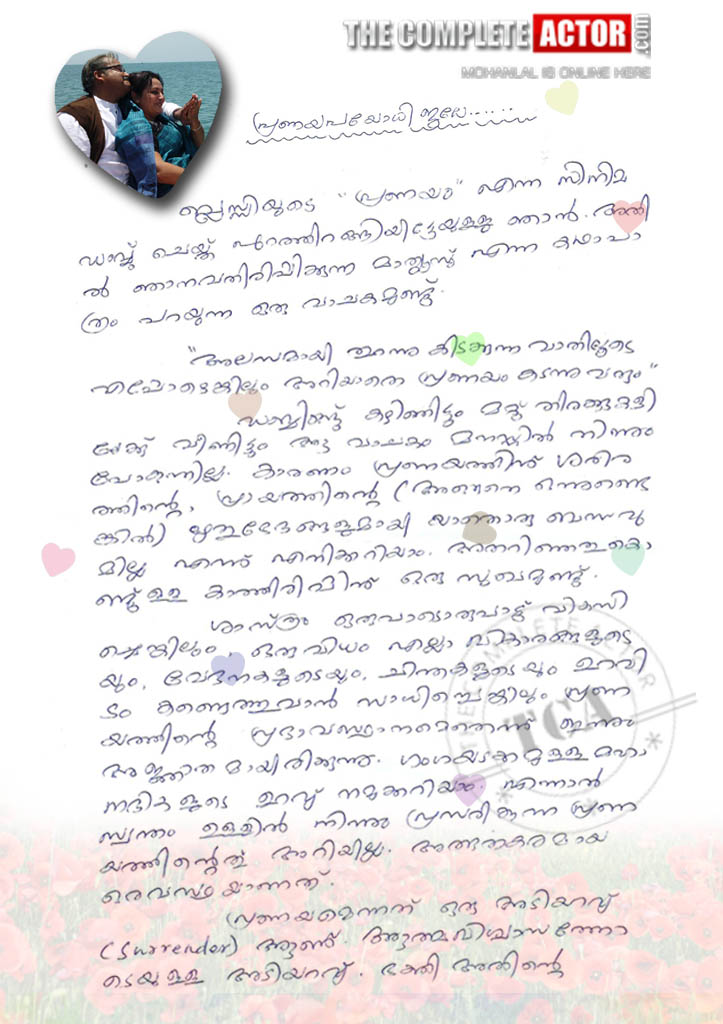 THE COMPLETE ACTOR.com
MOHANLAL IS ONLINE HERE
പ്രണയപയോധി ജലേ......
ബ്ലസ്സിയുടെ "പ്രണയം" എന്ന സിനിമ
ഡബ്ബ് ചെയ്ത് പുറത്തിറങ്ങിയിട്ടേയുള്ളു ഞാൻ. അതി
ൽ ഞാനവതരിപ്പിക്കുന്ന മാത്യൂസ് എന്ന കഥാപാ
ത്രം പറയുന്ന ഒരു വാചകമുണ്ട്.
"അലസമായി തുറന്നു കിടക്കുന്ന വാതിലൂടെ
എപ്പോഴെങ്കിലും അറിയാതെ പ്രണയം കടന്നു വരും"
ഡബ്ബിങ്ങ് കഴിഞ്ഞിട്ടും മറ്റു തിരക്കുകളി
ലേക്കു വീണിട്ടും ആ വാചകം മനസ്സിൽ നിന്നും
പോകുന്നില്ല. കാരണം പ്രണയത്തിന് ശരീര
ത്തിന്റെ, പ്രായത്തിന്റെ (അങ്ങനെ ഒന്നുണ്ടെ
ങ്കിൽ) ഋതുഭേദങ്ങളുമായി യാതൊരു ബന്ധവു
മില്ല എന്ന് എനിക്കറിയാം. അതറിഞ്ഞുകൊ
ണ്ടുള്ള കാത്തിരിപ്പിന് ഒരു സുഖമുണ്ട്.
ശാസ്ത്രം ഒരുപാടൊരുപാട് വികസി
ച്ചെങ്കിലും, ഒരുവിധം എല്ലാ വികാരങ്ങളുടെ
യും, വേദനകളുടെയും, ചിന്തകളുടെയും ഉറവി
ടം കണ്ടെത്തുവാൻ സാധിച്ചെങ്കിലും പ്രണ
യത്തിന്റെ പ്രഭാവസ്ഥാനമെതെന്ന് ഇന്നും
അജ്ഞാതമായിരിക്കുന്നു. ഗംഗയടക്കമുള്ള മഹാ
നദികളുടെ ഉറവ് നമുക്കറിയാം. എന്നാൽ
സ്വന്തം ഉള്ളിൽ നിന്നു പ്രസരിക്കുന്ന പ്രണ
യത്തിന്റെത് അറിയില്ല. അത്ഭുതകരമായ
ഒരവസ്ഥയാണത്.
പ്രണയമെന്നത് ഒരു അടിയറവ്
(Surrender) ആണ്. ആത്മവിശ്വാസത്തോ
ടെയുള്ള അടിയറവ്. ഭക്തി അതിന്റെ
THE COMPLETE ACTOR
TCA